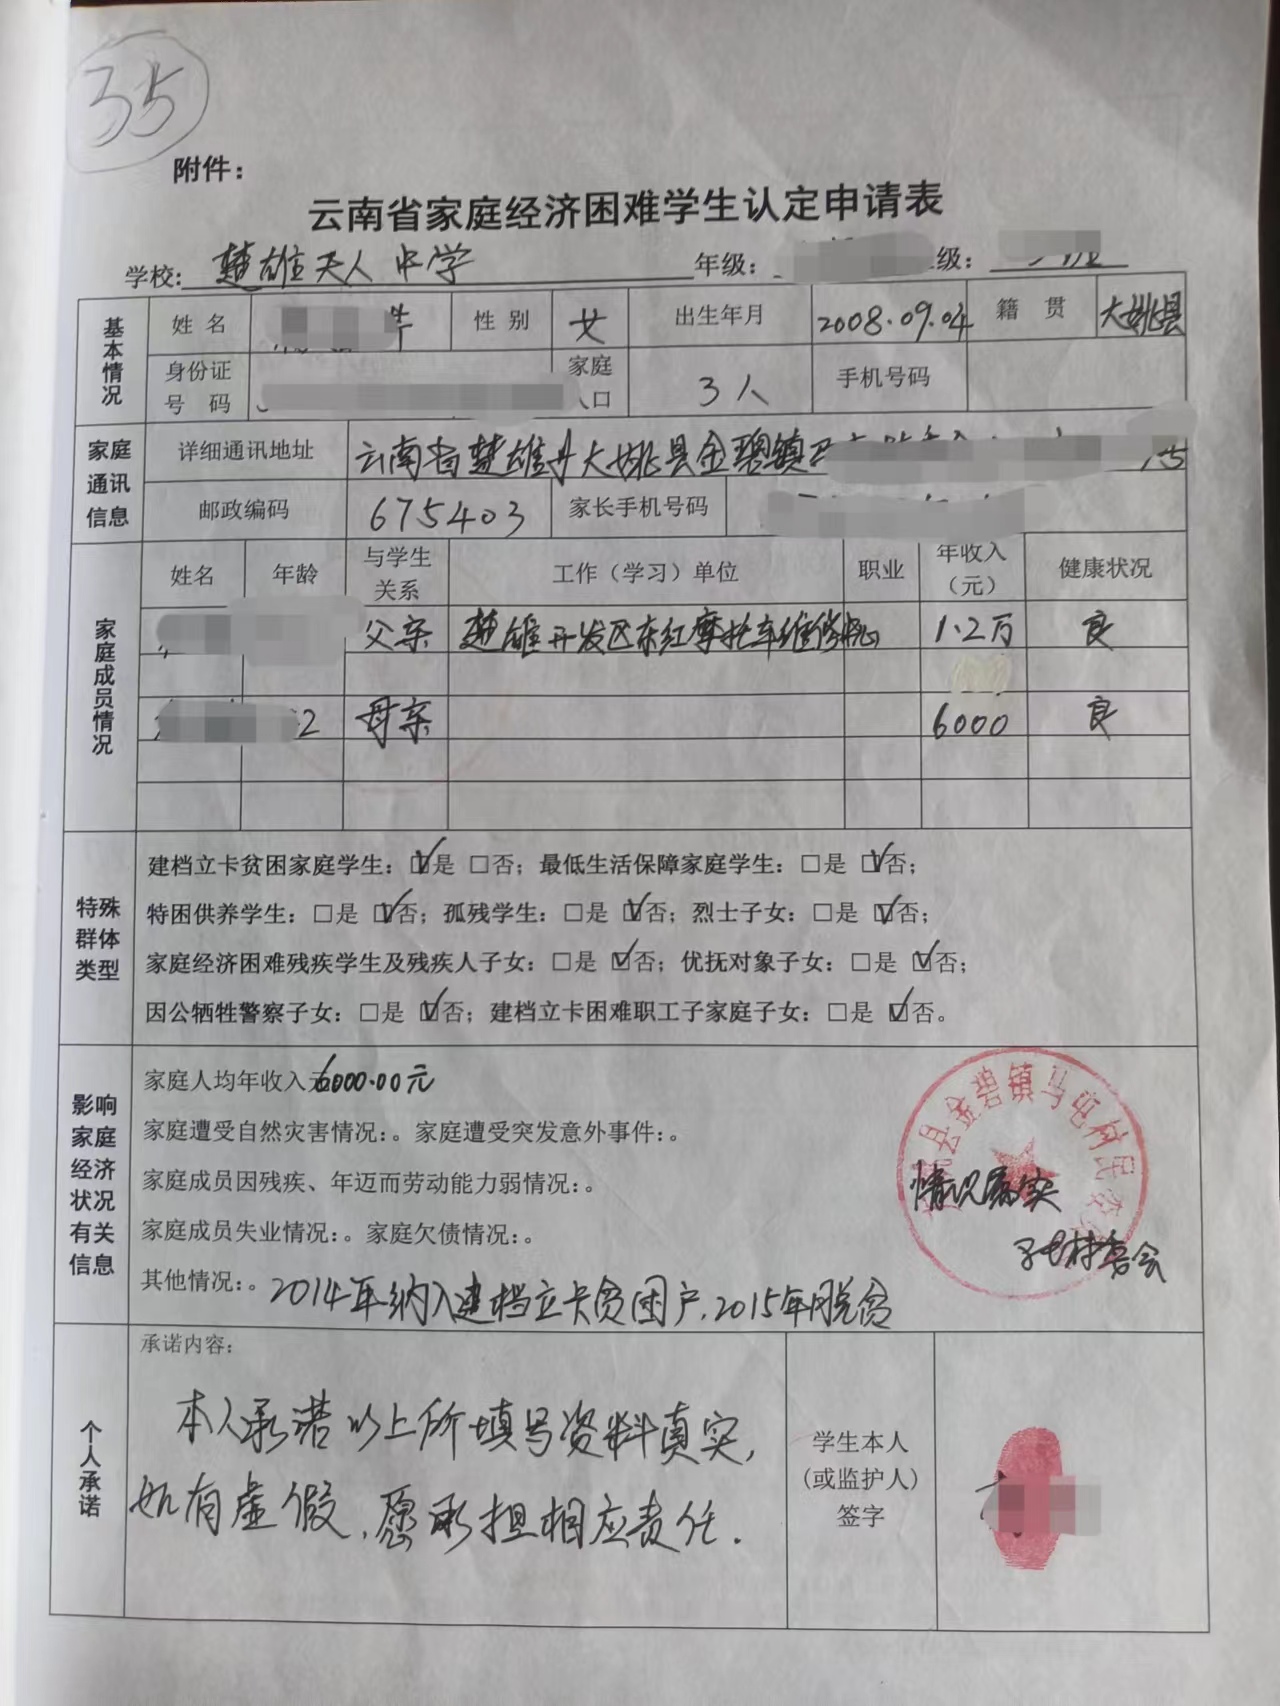 35
附件：
云南省家庭经济困难学生认定申请表
学校：楚雄天人中学 年级： 级：
基本情况
姓 名 性 别 女 出生年月 2008.09.04 籍 贯 大姚县
身份证号 码 家庭人口 3人 手机号码
家庭通讯信息
详细通讯地址 云南省楚雄州大姚县金碧镇
邮政编码 675403 家长手机号码
家庭成员情况
姓名 年龄 与学生关系 工作（学习）单位 职业 年收入（元） 健康状况
父亲 楚雄开发区东红摩托车维修 1.2万 良
2 母亲 6000 良
特殊群体类型
建档立卡贫困家庭学生：☑是 □否；最低生活保障家庭学生：□是 ☑否；
特困供养学生：□是 ☑否；孤残学生：□是 ☑否；烈士子女：□是 ☑否；
家庭经济困难残疾学生及残疾人子女：□是 ☑否；优抚对象子女：□是 ☑否；
因公牺牲警察子女：□是 ☑否；建档立卡困难职工子家庭子女：□是 ☑否。
影响家庭经济状况有关信息
家庭人均年收入 6000.00元
家庭遭受自然灾害情况：。家庭遭受突发意外事件：。
家庭成员因残疾、年迈而劳动能力弱情况：。
家庭成员失业情况：。家庭欠债情况：。
其他情况：。2014年纳入建档立卡贫困户，2015年脱贫
县金碧镇马屯村民委
情况属实
村委会
个人承诺
承诺内容：
本人承诺以上所填写资料真实，
如有虚假，愿承担相应责任.
学生本人
（或监护人）
签字